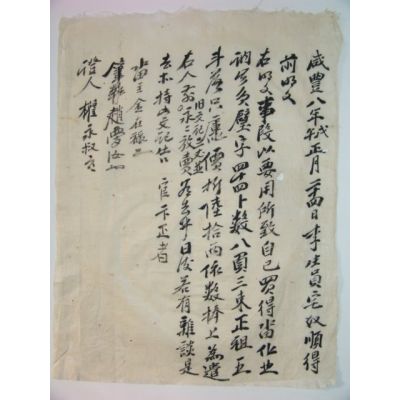 咸豊八年戊午正月日李生員宅奴順得
前明文
右明文事段以要用所致自己買得畓伏在
員壁字四十四卜數八負三束正租五
斗落只價折陸拾兩依數捧上為遣
右人前永永放賣旧文記並為去乎日後若有雜談是
去亦持此文記告官卞正者
畓主金在祿
筆執趙學
證人權永叔